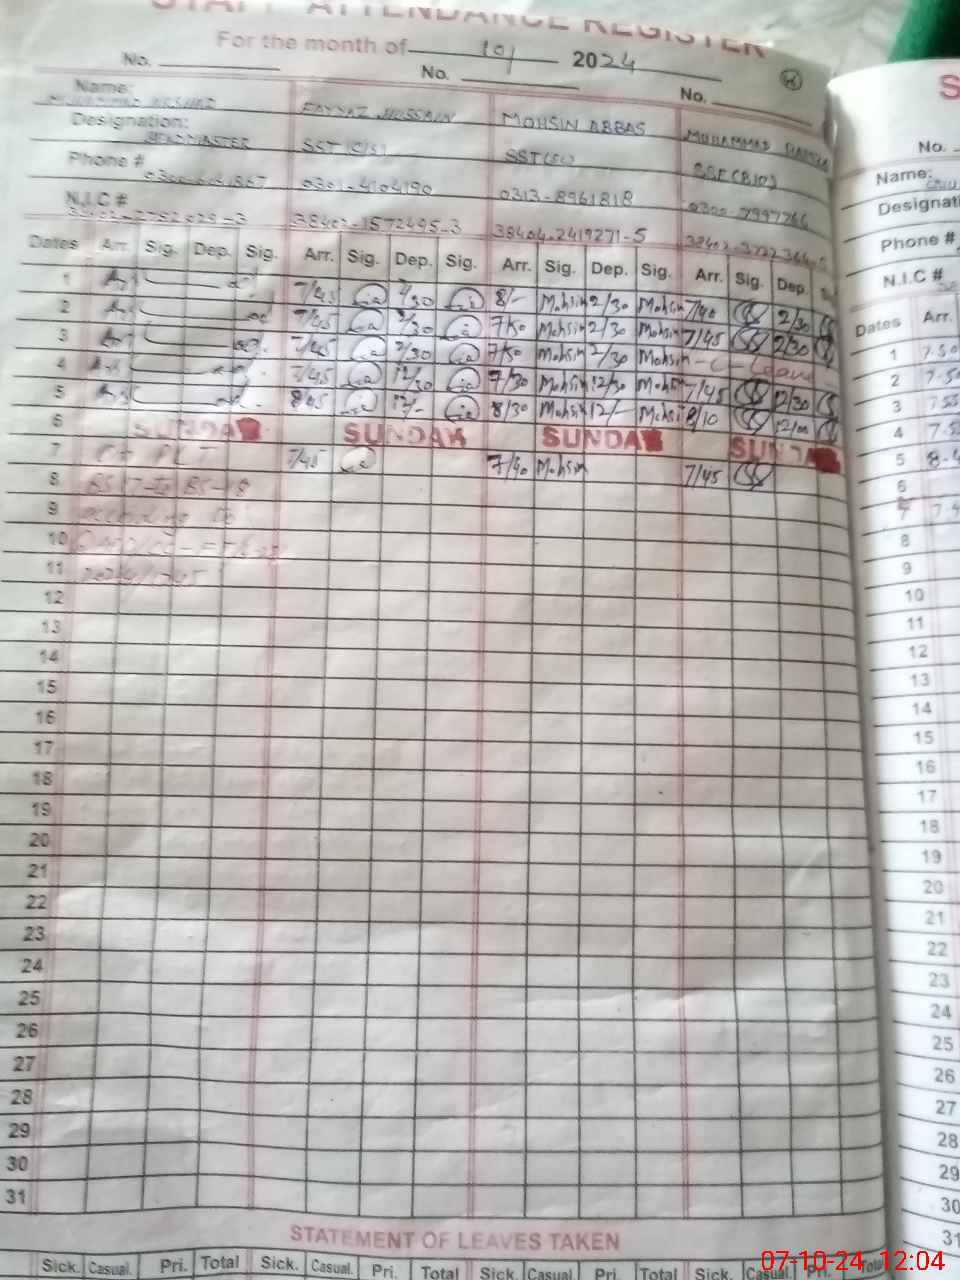 STAFF ATTENDANCE REGISTER
For the month of 10/ 2024
No. No. No.
Name: FAYYAZ HUSSAIN MOHSIN ABBAS MUHAMMAD
Designation: HEADMASTER SST(CS) SST(SC) SSE(BIO)
Phone # 0301-4104190 0313-8961818 0300-7997766
N.I.C # 38402-1572495-3 38404-2419271-5
Dates Arr. Sig. Dep. Sig. Arr. Sig. Dep. Sig. Arr. Sig. Dep. Sig. Arr. Sig. Dep.
1 7/45 2/30 8/- Mohsin 2/30 Mohsin 7/40 2/30
2 7/45 2/30 7/50 Mohsin 2/30 Mohsin 7/45 2/30
3 7/45 2/30 7/50 Mohsin 2/30 Mohsin - C - Leave
4 7/45 12/30 7/30 Mohsin 12/30 Mohsin 7/45 12/30
5 8/45 12/- 8/30 Mohsin 12/- Mohsin 8/10 12/00
6 SUNDAY SUNDAY SUNDAY SUNDAY
7 7/45 7/40 Mohsin 7/45
8 BS-17 to BS-18
9
10
11
12
13
14
15
16
17
18
19
20
21
22
23
24
25
26
27
28
29
30
31
STATEMENT OF LEAVES TAKEN
Sick. Casual. Pri. Total Sick. Casual. Pri. Total Sick. Casual. Pri. Total Sick. Casual. Pri. Total
S
No.
Name:
Designati
Phone #
N.I.C #
Dates Arr.
1 7.50
2 7.50
3 7.55
4 7.5
5 8-4
6
7
8
9
10
11
12
13
14
15
16
17
18
19
20
21
22
23
24
25
26
27
28
29
30
31
07-10-24 12:04